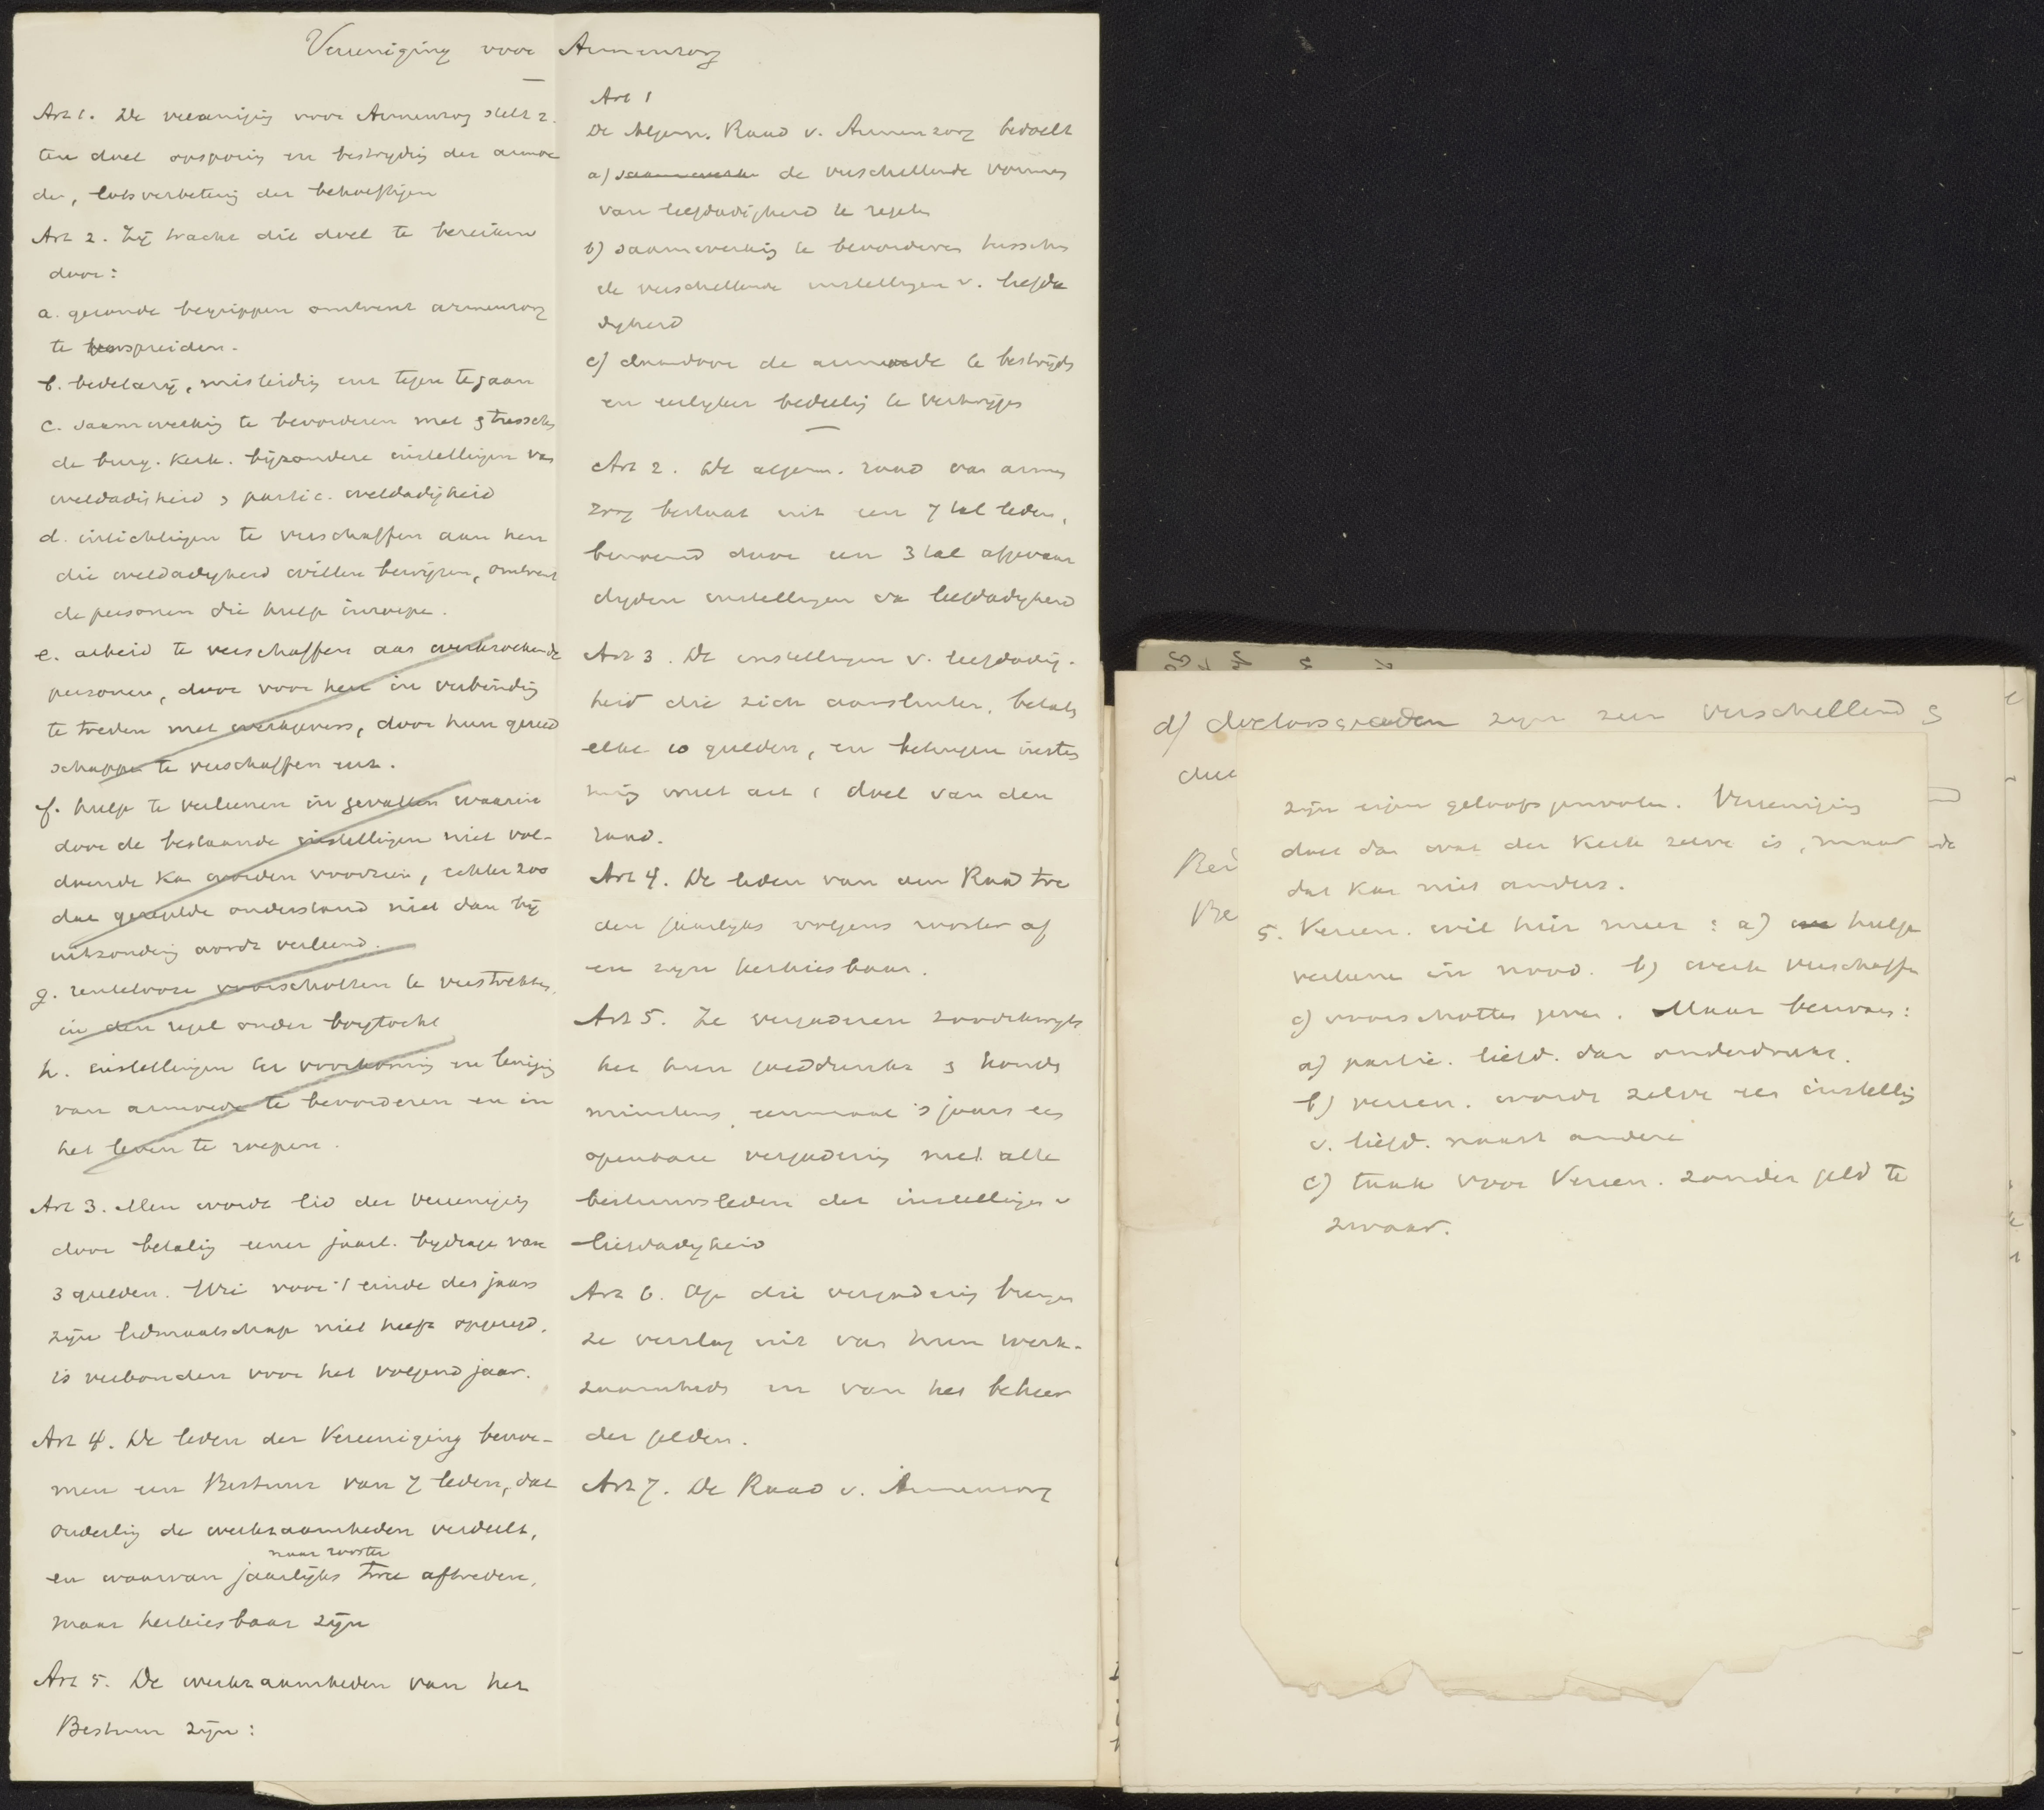 Vereeniging voor Armenzorg
Art 1. De vereeniging voor Armenzorg stelt z.
ten doel opsporing en bestrijding der armoe
de, lotsverbetering der behoeftigen
Art 2. Zij tracht dit doel te bereiken
door:
a. gezonde begrippen omtrent armenzorg
te verspreiden.
b. bedelarij, misleiding enz tegen te gaan
c. saamwerking te bevorderen met & tusschen
de burg. kerk. bijzondere instellingen van
weldadigheid & partic. weldadigheid
d. inlichtingen te verschaffen aan hen
die weldadigheid willen bewijzen, omtrent
de personen die hulp inroepen.
e. arbeid te verschaffen aan werkzoekende
personen, door voor hen in verbinding
te treden met werkgevers, door hun gereed
schappen te verschaffen enz.
f. hulp te verleenen in gevallen waarin
door de bestaande instellingen niet vol-
doende kan worden voorzien, echter zoo
dat geregelde onderstand niet dan bij
uitzondering wordt verleend.
g. rentelooze voorschotten te verstrekken,
in den regel onder borgtocht
h. instellingen ter voorkoming en leniging
van armoede te bevorderen en in
het leven te roepen.
Art 3. Men wordt lid der vereeniging
door betaling eener jaarl. bijdrage van
3 gulden. Wie voor 't einde des jaars
zijn lidmaatschap niet heeft opgezegd,
is verbonden voor het volgend jaar.
Art 4. De leden der Vereeniging benoe-
men een Bestuur van 7 leden, dat
onderling de werkzaamheden verdeelt,
naar rooster
en waarvan jaarlijks twee aftreden,
maar herkiesbaar zijn
Art 5. De werkzaamheden van het
Bestuur zijn:
Art 1
De Algem. Raad v. Armenzorg bedoelt
a) saamwerken de verschillende vormen
van liefdadigheid te regelen
b) saamwerking te bevorderen tusschen
de verschillende instellingen v. liefda
digheid
c) daardoor de armoede te bestrijden
en eerlijker bedeeling te verkrijgen
Art 2. De algem. raad van armen
zorg bestaat uit een 7 tal leden,
benoemd door een 3 tal afgevaar
digden instellingen van liefdadigheid
Art 3. De instellingen v. liefdadig-
heid die zich aansluiten, betalen
elke 10 gulden, en betuigen instem
ming met art 1 doel van den
raad.
Art 4. De leden van den Raad tre
den jaarlijks volgens rooster af
en zijn herkiesbaar.
Art 5. Ze vergaderen zoodikwijls
het hun goeddunkt & houden
minstens eenmaal 's jaars een
openbare vergadering met alle
bestuursleden der instellingen v
liefdadigheid
Art 6. Op die vergadering brengen
ze verslag uit van hun werk-
zaamheden en van het beheer
der gelden.
Art 7. De Raad v. Armenzorg
d) doeloorzaken zijn zeer verschillend &
zijn eigen geloofsgenooten. Vereeniging
doet dan wat der Kerk zelve is, maar
dat kan niet anders.
5. Vereen. wil hier meer: a) hulp
verleenen in nood. b) werk verschaffen
c) voorschotten geven. Maar bezwaar:
a) partic. liefd. dan onderdrukt.
b) vereen. wordt zelve een instelling
v. liefd. naast andere
c) taak voor Vereen. zonder geld te
zwaar.